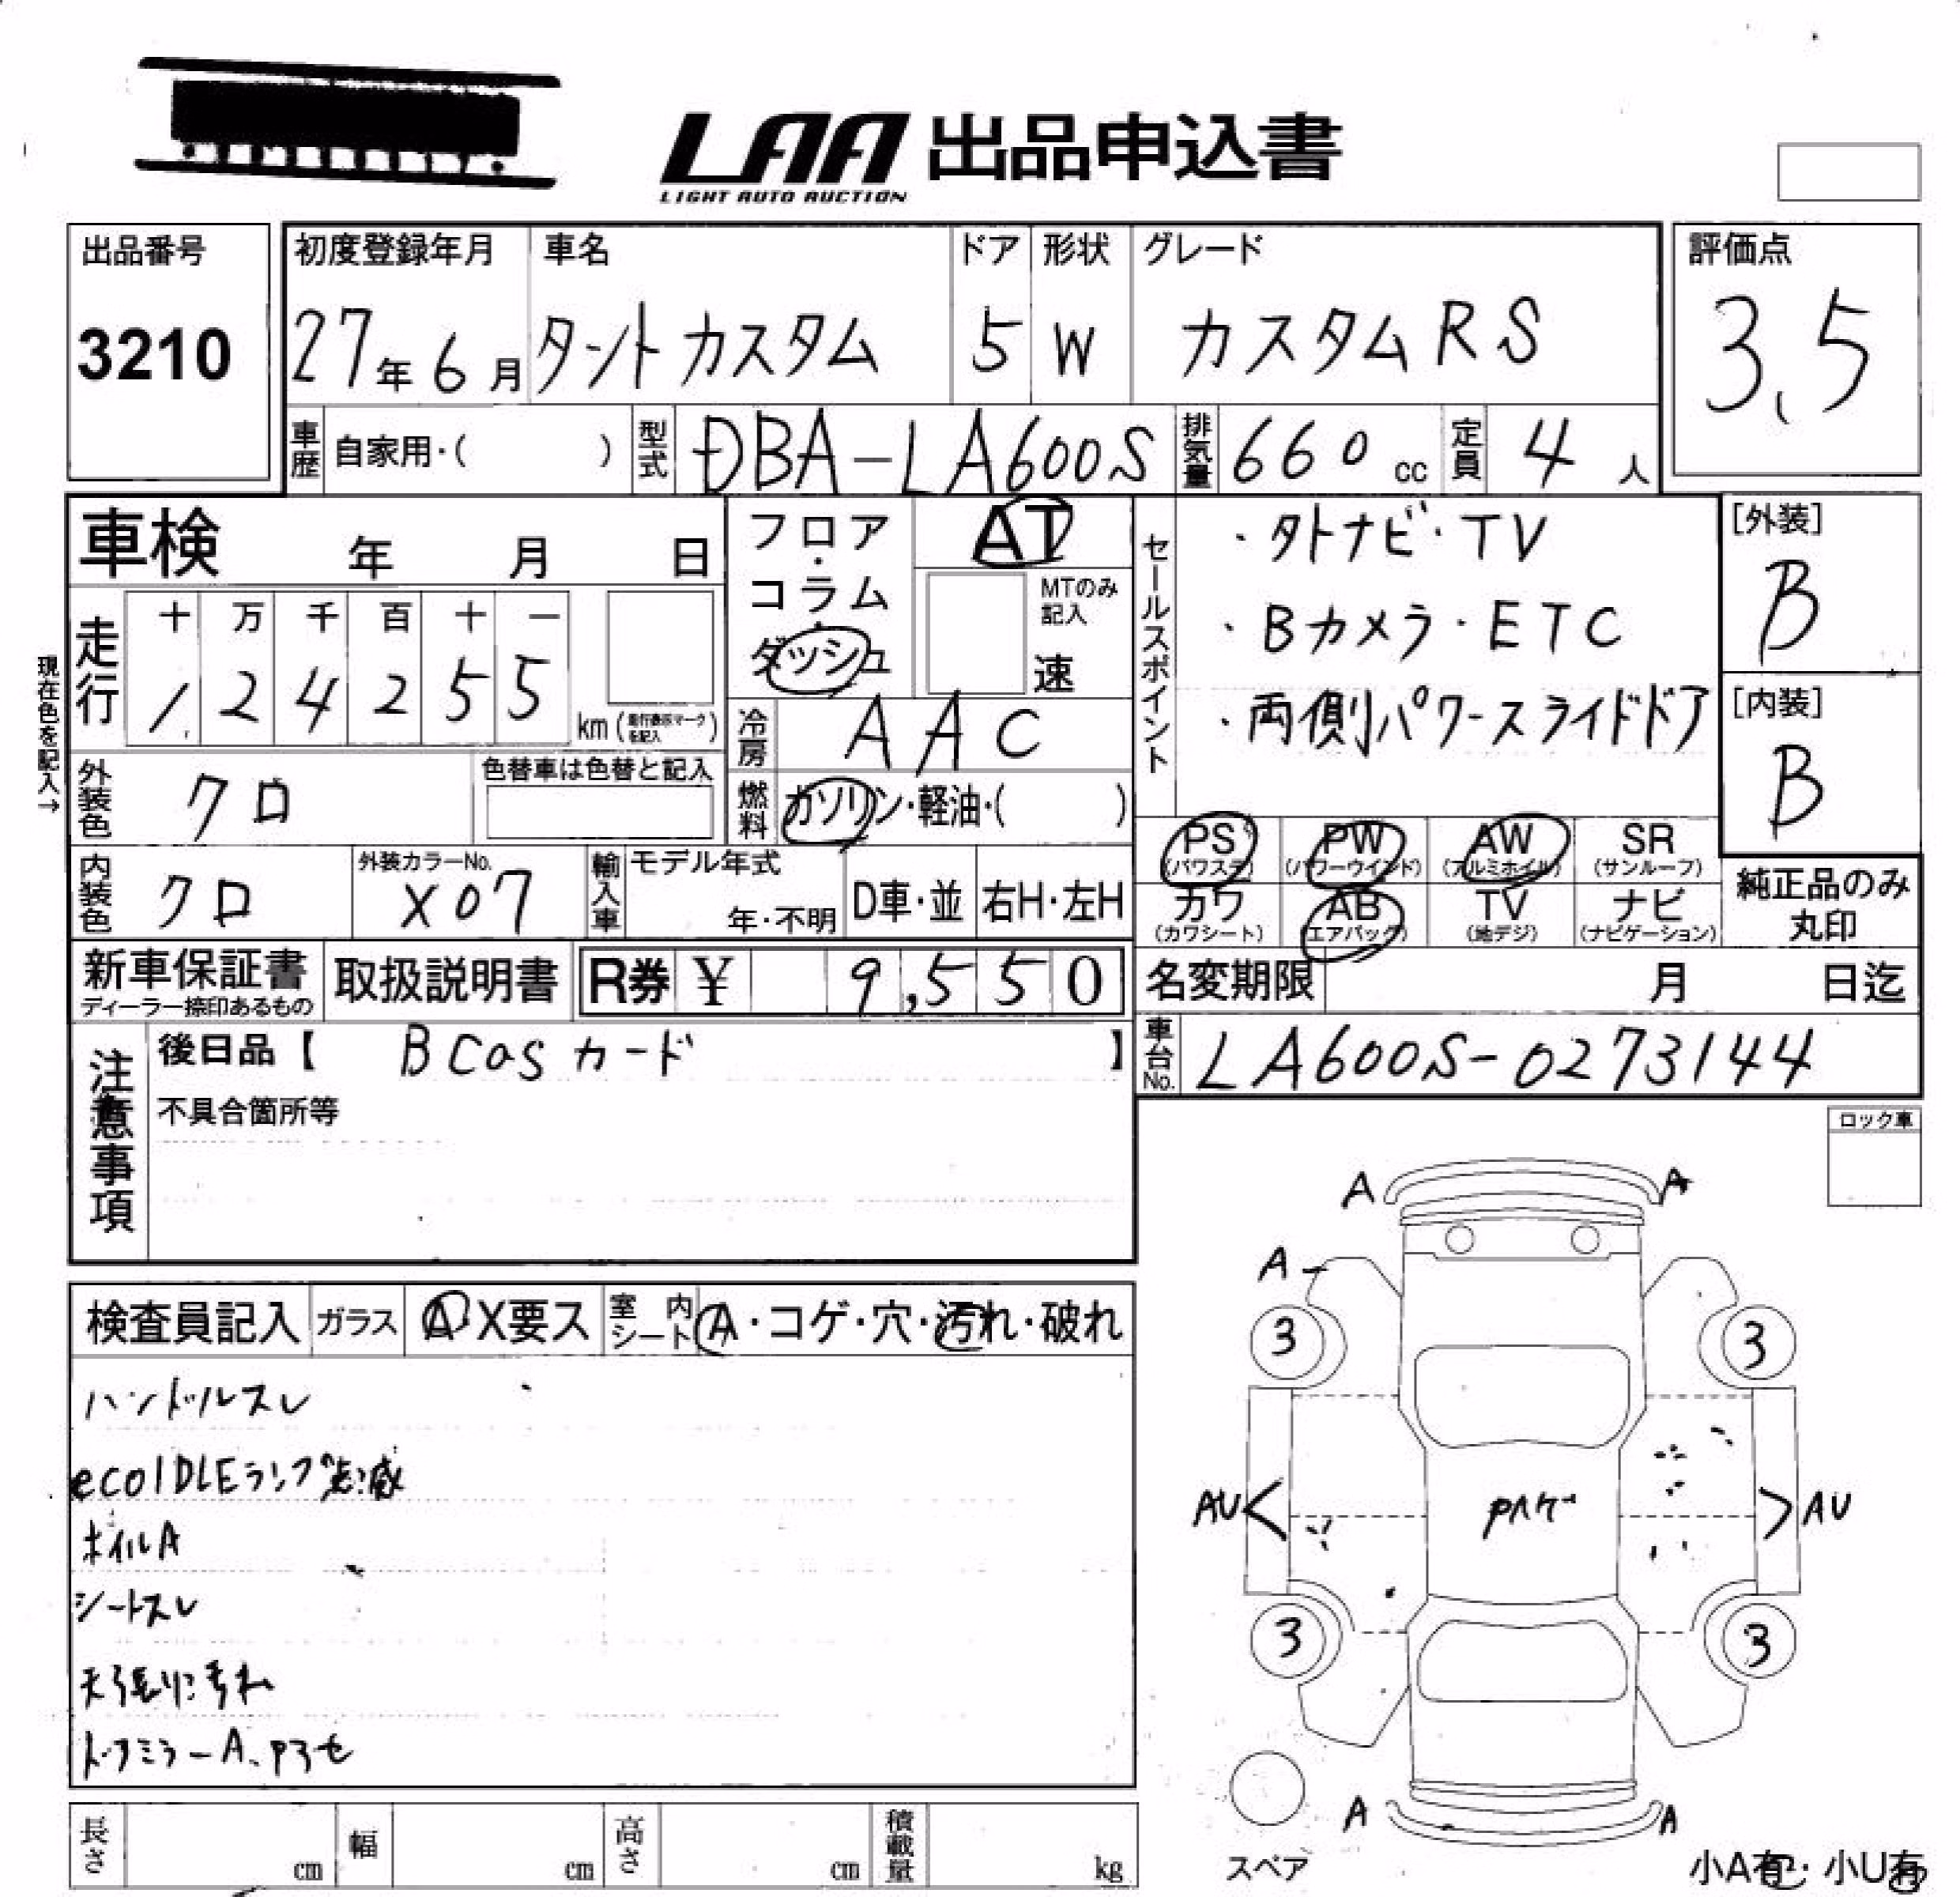 LAA 出品申込書
LIGHT AUTO AUCTION
出品番号
3210
初度登録年月
27年6月
車名
タントカスタム
ドア
5
形状
W
グレード
カスタムRS
評価点
3.5
車歴 自家用・( )
型式 DBA-LA600S
排気量 660cc
定員 4人
車検 年 月 日
フロア・コラム・ダッシュ
AT
MTのみ記入
速
セールスポイント
・外ナビ・TV
・Bカメラ・ETC
・両側パワースライドドア
[外装]
B
[内装]
B
現在色を記入→
走行
十 万 千 百 十 一
1 2 4 2 5 5
km (走行表示マークを記入)
冷房 AAC
燃料 ガソリン・軽油・( )
外装色 クロ
色替車は色替と記入
内装色 クロ
外装カラーNo.
X07
輸入車 モデル年式
年・不明
D車・並
右H・左H
PS (パワステ)
PW (パワーウインド)
AW (アルミホイル)
SR (サンルーフ)
カワ (カワシート)
AB (エアバック)
TV (地デジ)
ナビ (ナビゲーション)
純正品のみ
丸印
新車保証書
ディーラー捺印あるもの
取扱説明書
R券 ¥ 9,550
名変期限 月 日迄
車台No. LA600S-0273144
注意事項
後日品【 BCasカード 】
不具合箇所等
ロック車
検査員記入
ガラス A X要ス
室内シート A・コゲ・穴・汚れ・破れ
ハンドルスレ
ecoIDLEランプ点滅
ホイルA
シートスレ
天張リ汚れ
ドアミラーA、Pアセ
A A
A
3 3
AU AU
Pハゲ
3 3
A A
スペア
小A有・小U有
長さ cm
幅 cm
高さ cm
積載量 kg